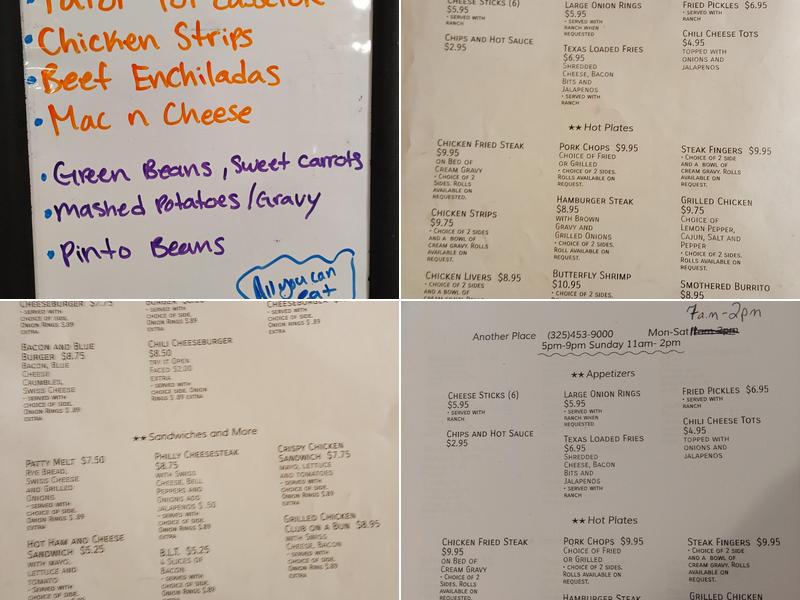 Chicken Strips
Beef Enchiladas
Mac n Cheese
Green Beans, Sweet Carrots
Mashed Potatoes/Gravy
Pinto Beans
All you can
eat
Cheese Sticks (6)
$5.95
• Served with
Ranch
Chips and Hot Sauce
$2.95
Large Onion Rings
$5.95
• Served with
Ranch when
requested
Texas Loaded Fries
$6.95
Shredded
Cheese, Bacon
Bits and
Jalapenos
• Served with
Ranch
Fried Pickles $6.95
• Served with
Ranch
Chili Cheese Tots
$4.95
Topped with
Onions and
Jalapenos
★★ Hot Plates
Chicken Fried Steak
$9.95
on Bed of
Cream Gravy
• Choice of 2
Sides. Rolls
available on
request.
Chicken Strips
$9.75
• Choice of 2 sides
and a bowl of
cream gravy. Rolls
available on
request.
Chicken Livers $8.95
• Choice of 2 sides
and a bowl of
Pork Chops $9.95
Choice of Fried
or Grilled
• Choice of 2 sides.
Rolls available on
request.
Hamburger Steak
$8.95
with Brown
Gravy and
Grilled Onions
• Choice of 2 sides.
Roll available on
request.
Butterfly Shrimp
$10.95
• Choice of 2 sides.
Steak Fingers $9.95
• Choice of 2 side
and a bowl of
cream gravy. Rolls
available on
request.
Grilled Chicken
$9.75
Choice of
Lemon Pepper,
Cajun, Salt and
Pepper
• Choice of 2 sides.
Rolls available on
request.
Smothered Burrito
$8.95
Cheeseburger $7.75
• Served with
choice of side.
Onion Rings $.89
extra
Bacon and Blue
Burger $8.75
Bacon, Blue
Cheese
Crumbles,
Swiss Cheese
• Served with
choice of side.
Onion Rings $.89
extra
• Served with
choice of side.
Onion Rings $.89
extra
Chili Cheeseburger
$8.50
Try it Open
Faced $2.00
extra
• Served with
choice of side. Onion
Rings $.89 extra
Cheeseburger
• Served with
choice of side.
Onion Rings $.89
extra
★★ Sandwiches and More
Patty Melt $7.50
Rye Bread,
Swiss Cheese
and Grilled
Onions
• Served with
choice of side.
Onion Rings $.89
extra
Hot Ham and Cheese
Sandwich $5.25
with Mayo,
Lettuce and
Tomato
Philly Cheesesteak
$8.75
with Swiss
Cheese, Bell
Peppers and
Onions add
Jalapenos $.50
• Served with
choice of side.
Onion Rings $.89
extra
B.L.T. $5.25
4 Slices of
Bacon
• Served with
choice of side.
Onion Rings $.89
extra
Crispy Chicken
Sandwich $7.75
Mayo, Lettuce
and Tomatoes
• Served with
choice of side.
Onion Rings $.89
extra
Grilled Chicken
Club on a Bun $8.95
with Swiss
Cheese, Bacon
• Served with
choice of side.
Onion Ring $.89
extra
7a.m-2pm
Another Place (325)453-9000 Mon-Sat 11am-2pm
5pm-9pm Sunday 11am- 2pm
★★ Appetizers
Cheese Sticks (6)
$5.95
• Served with
Ranch
Chips and Hot Sauce
$2.95
Large Onion Rings
$5.95
• Served with
Ranch when
requested
Texas Loaded Fries
$6.95
Shredded
Cheese, Bacon
Bits and
Jalapenos
• Served with
Ranch
Fried Pickles $6.95
• Served with
Ranch
Chili Cheese Tots
$4.95
Topped with
Onions and
Jalapenos
★★ Hot Plates
Chicken Fried Steak
$9.95
on Bed of
Cream Gravy
• Choice of 2
Sides. Rolls
available on
request.
Pork Chops $9.95
Choice of Fried
or Grilled
• Choice of 2 sides.
Rolls available on
request.
Hamburger Steak
Steak Fingers $9.95
• Choice of 2 side
and a bowl of
cream gravy. Rolls
available on
request.
Grilled Chicken